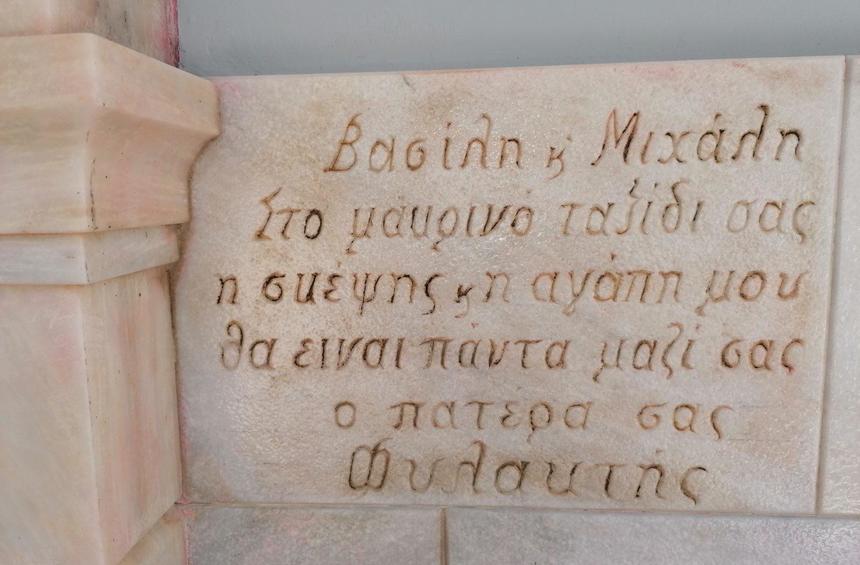 Βασίλη κ' Μιχάλη
Στο μαυρινό ταξίδι σας
η σκέψης κ η αγάπη μου
θα ειναι πάντα μαζί σας
ο πατερα σας
Φυλακτής